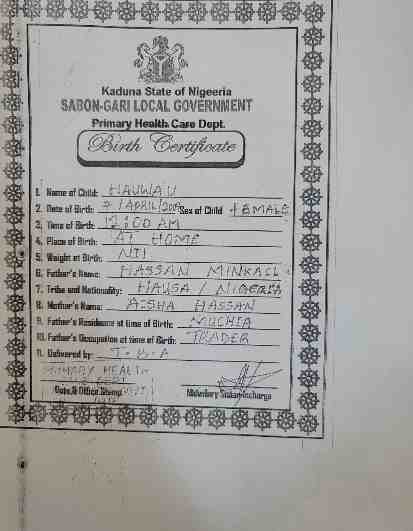 Kaduna State of Nigeeria
SABON-GARI LOCAL GOVERNMENT
Primary Health Care Dept.
Birth Certificate
1. Name of Child: HAUWA'U
2. Date of Birth: /APRIL/ Sex of Child FEMALE
3. Time of Birth: 12:00 AM
4. Place of Birth: AT HOME
5. Weight at Birth: NIL
6. Father's Name: HASSAN
7. Tribe and Nationality: HAUSA / NIGERIA
8. Mother's Name: AISHA HASSAN
9. Father's Residence at time of Birth: MUCHIA
10. Father's Occupation at time of Birth: TRADER
11. Delivered by: T.B.A
PRIMARY HEALTH
Date & Office Stamp
Midwifery Sister Incharge